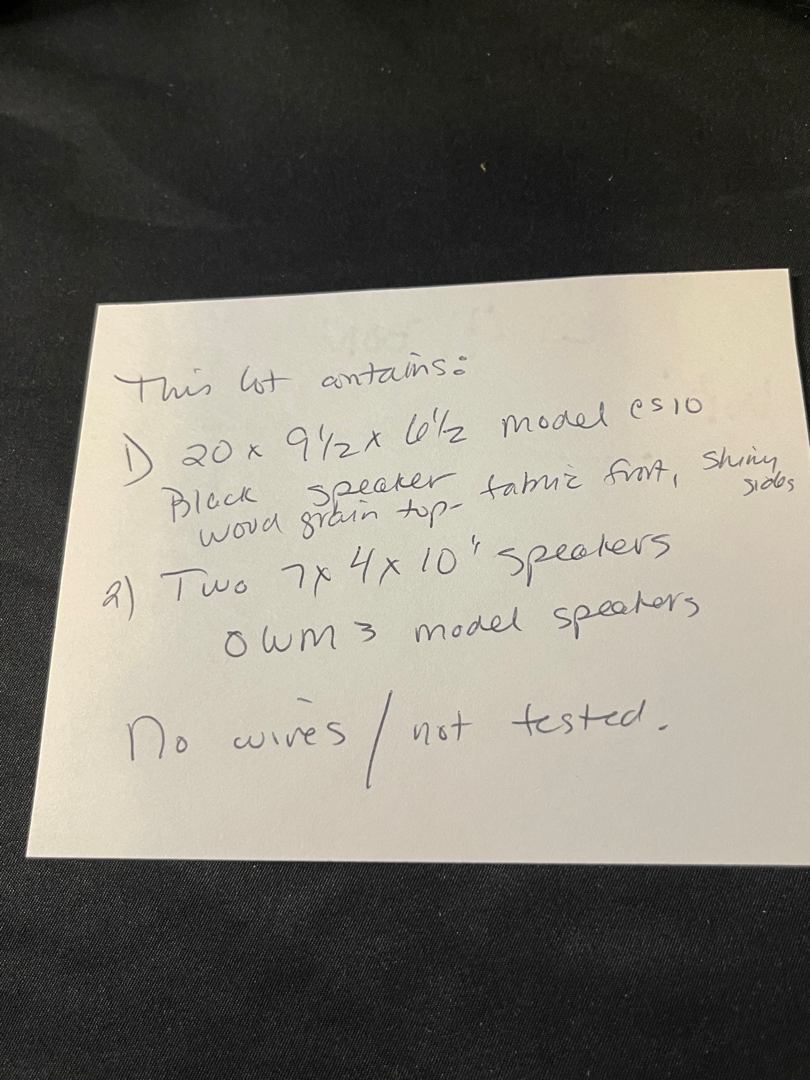 This lot contains:
1) 20 x 9 1/2 x 6 1/2 model CS10
Black speaker
wood grain top- fabric front, shiny sides
2) Two 7 x 4 x 10" speakers
OWM3 model speakers
No wires / not tested.